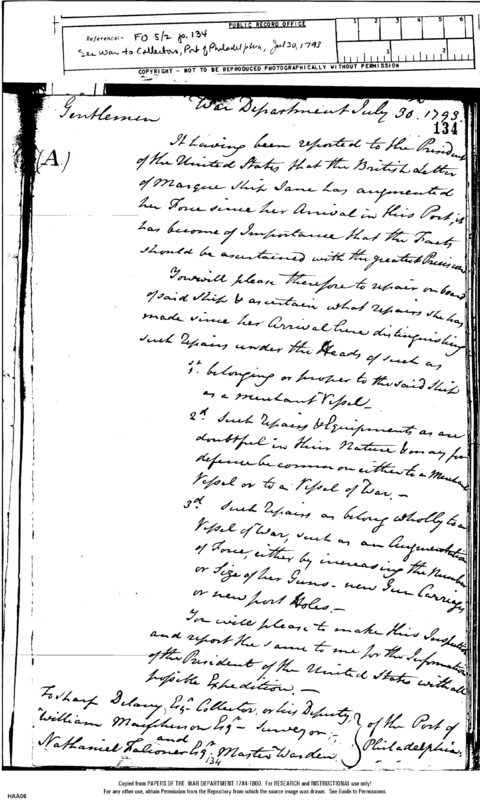 PUBLIC RECORD OFFICE
1 2 3 4 5 6
Reference:- FO 5/2 p. 134
1 2
See War to Collectors, Port of Philadelphia, Jul 30, 1793
COPYRIGHT - NOT TO BE REPRODUCED PHOTOGRAPHICALLY WITHOUT PERMISSION
War Department July 30. 1793.
134
Gentlemen
(A)
It having been reported to the President
of the United States that the British Letter
of Marque Ship Jane has augmented
her Force since her Arrival in this Port, it
has become of Importance that the Facts
should be ascertained with the greatest Precision
You will please therefore to repair on board
of said Ship & ascertain what repairs she has
made since her Arrival here distinguishing
such repairs under the Heads of such as
1st. belonging or proper to the said Ship
as a merchant Vessel.-
2d Such repairs & Equipments as are
doubtful in their Nature & may for
defence be common either to a Merchant
Vessel or to a Vessel of War,-
3d. Such Repairs as belong wholly to a
Vessel of War, such as an Augmentation
of Force, either by increasing the Number
or Size of her Guns- new Gun Carriages
or new port Holes.-
You will please to make this Inspection
and report the same to me for the Information
of the President of the United States with all
possible Expedition.-
To Sharp Delany, Esqr. Collector, or his Deputy,
William Macpherson Esqr- Surveyor,-
and
Nathaniel Falconer Esqr- Master Warden
of the Port of
Philadelphia.
134
Copied from PAPERS OF THE WAR DEPARTMENT 1784-1800. For RESEARCH and INSTRUCTIONAL use only!
HAA06
For any other use, obtain Permission from the Repository from which the source image was drawn. See Guide to Permissions.